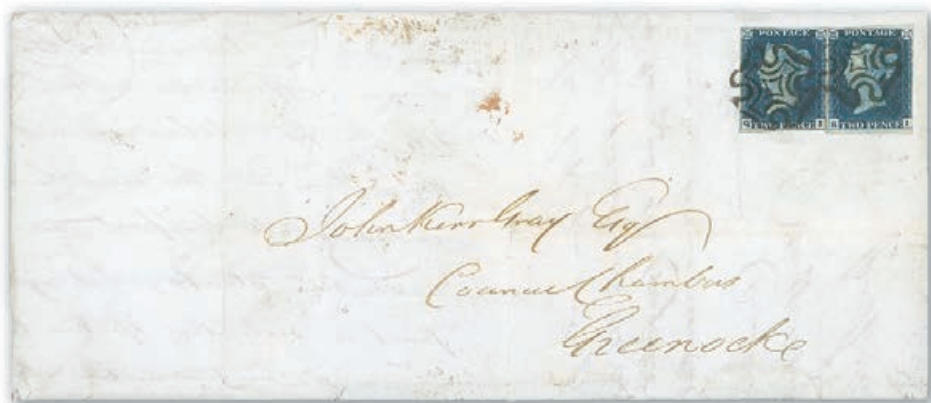 POSTAGE POSTAGE
TWO PENCE I TWO PENCE I
John Kerr Gray Esq
Council Chambers
Greenocke